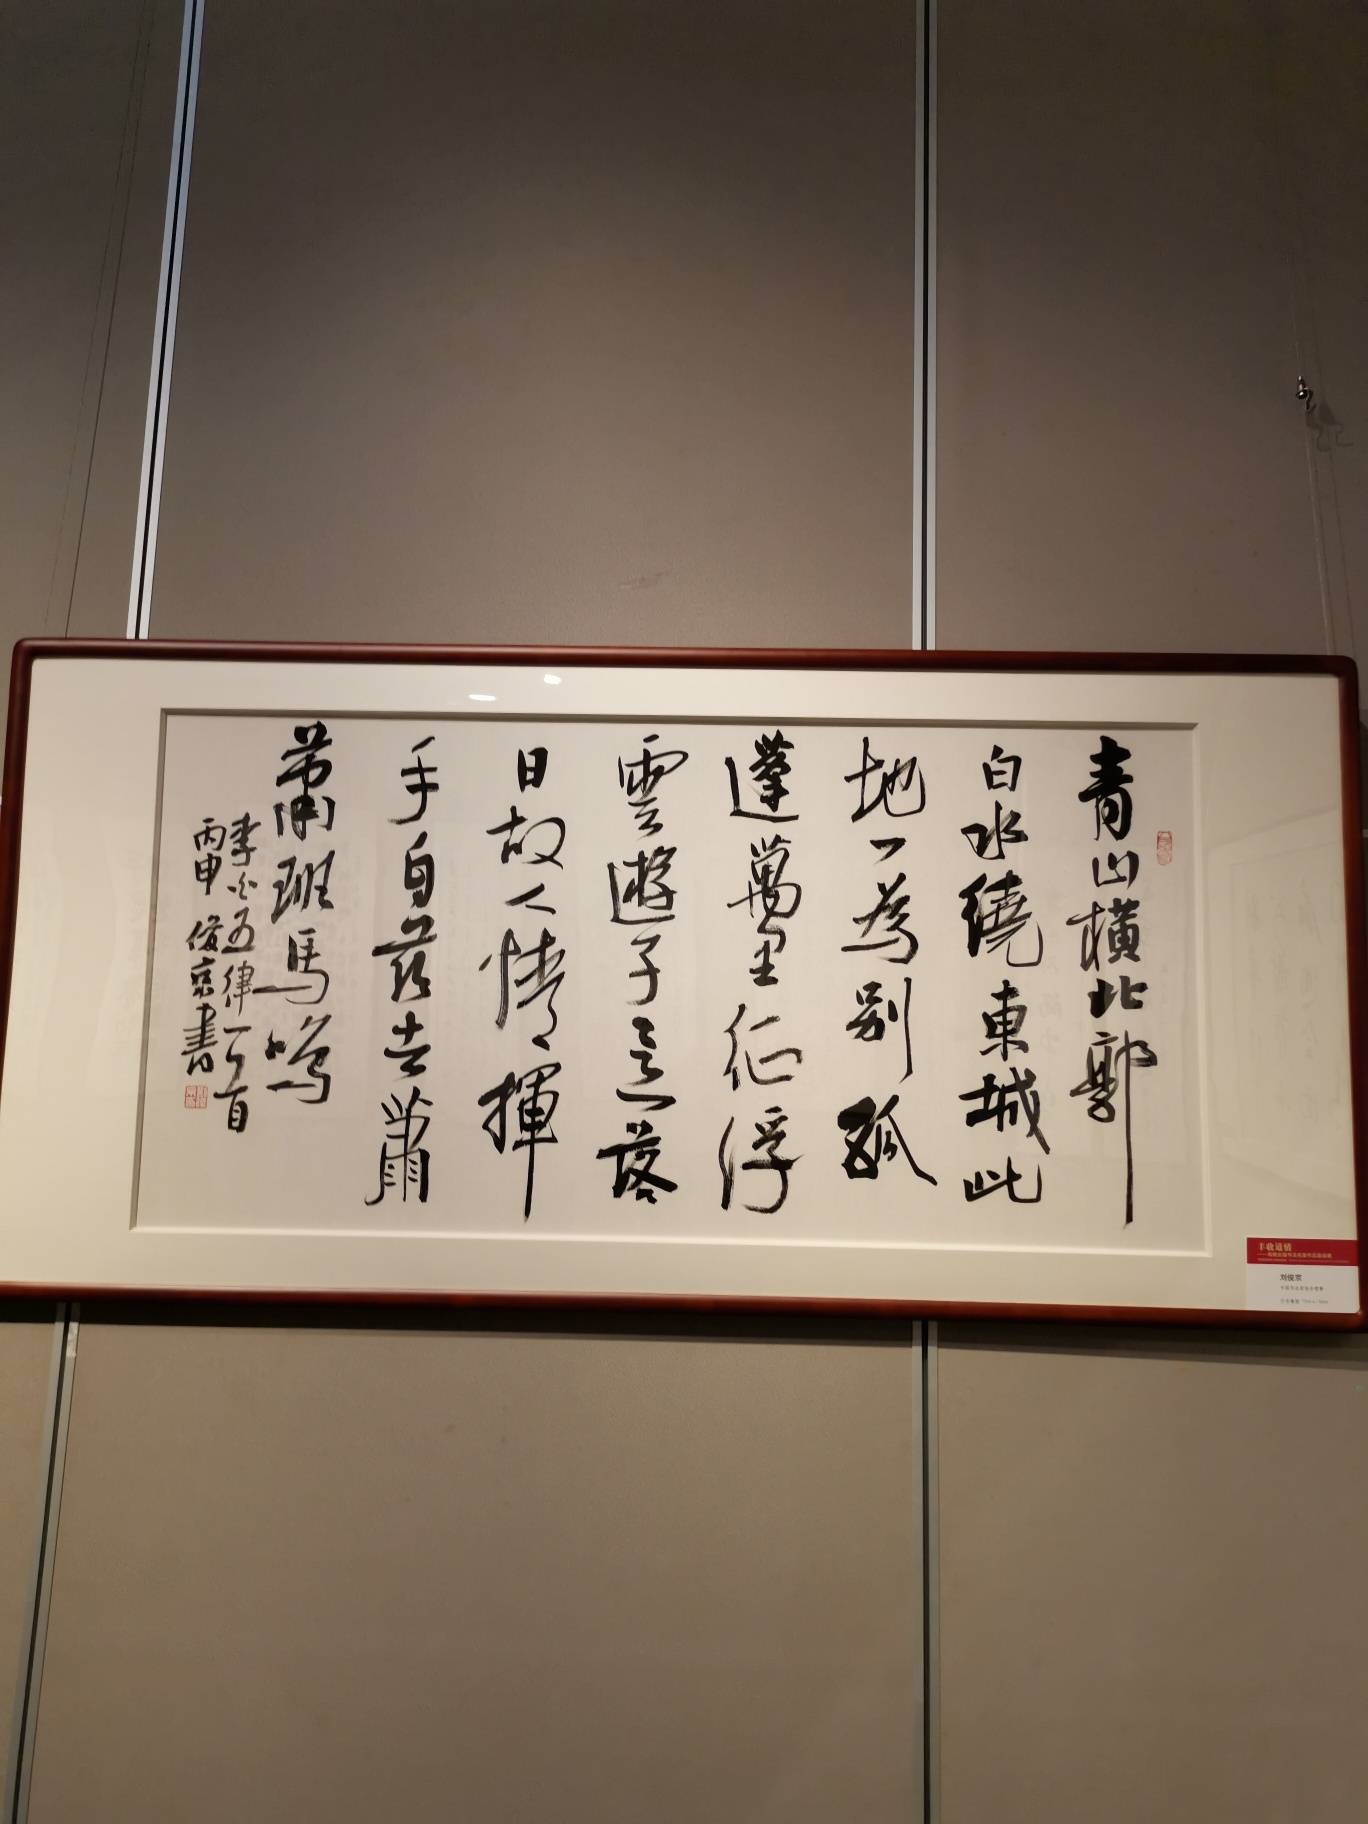 青山橫北郭
白水繞東城此
地一為别孤
蓬萬里征浮
雲遊子意落
日故人情揮
手自茲去蕭
蕭班馬鳴
李白五律一首
丙申 俊京書
丰收道情
刘俊京